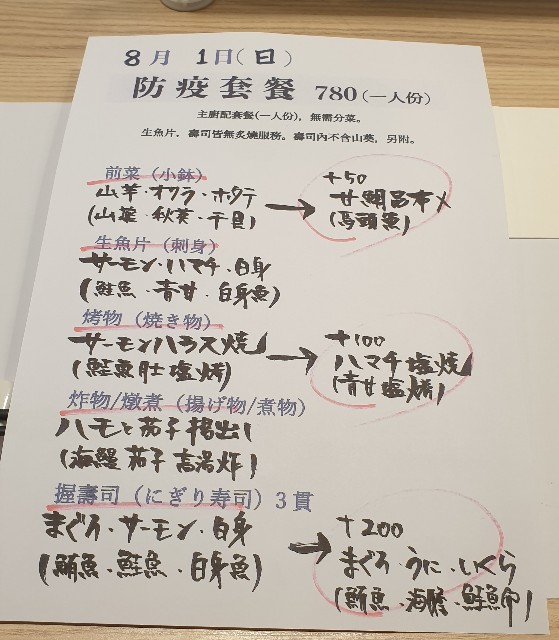 8月 1日(日)
防疫套餐 780(一人份)
主廚配套餐(一人份)，無需分菜。
生魚片，壽司皆無炙燒服務。壽司內不含山葵，另附。
前菜（小鉢）
山羊・オクラ・ホタテ
(山藥・秋葵・干貝)
→ +50
甘鯛昆布〆
(馬頭魚)
生魚片（刺身）
サーモン・ハマチ・白身
(鮭魚・青甘・白身魚)
烤物（焼き物）
サーモンハラス焼
(鮭魚肚塩烤)
→ +100
ハマチ塩焼
(青甘塩烤)
炸物/燉煮（揚げ物/煮物）
ハモと茄子揚出し
(海鰻茄子高湯炸)
握壽司（にぎり寿司）3貫
まぐろ・サーモン・白身
(鮪魚・鮭魚・白身魚)
→ +200
まぐろ・うに・いくら
(鮪魚・海膽・鮭魚卵)